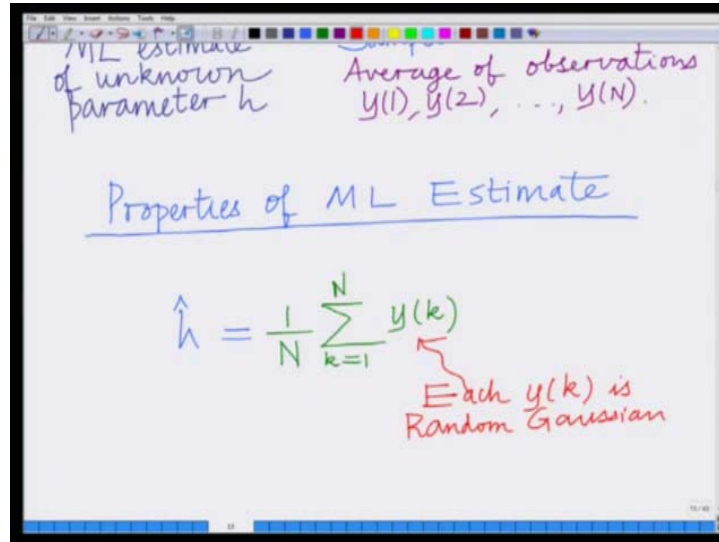 File Edit View Insert Actions Tools Help
ML estimate
of unknown
parameter h
Average of observations
y(1), y(2), ..., y(N).
Properties of ML Estimate
ĥ = 1/N ∑_{k=1}^{N} y(k)
Each y(k) is
Random Gaussian